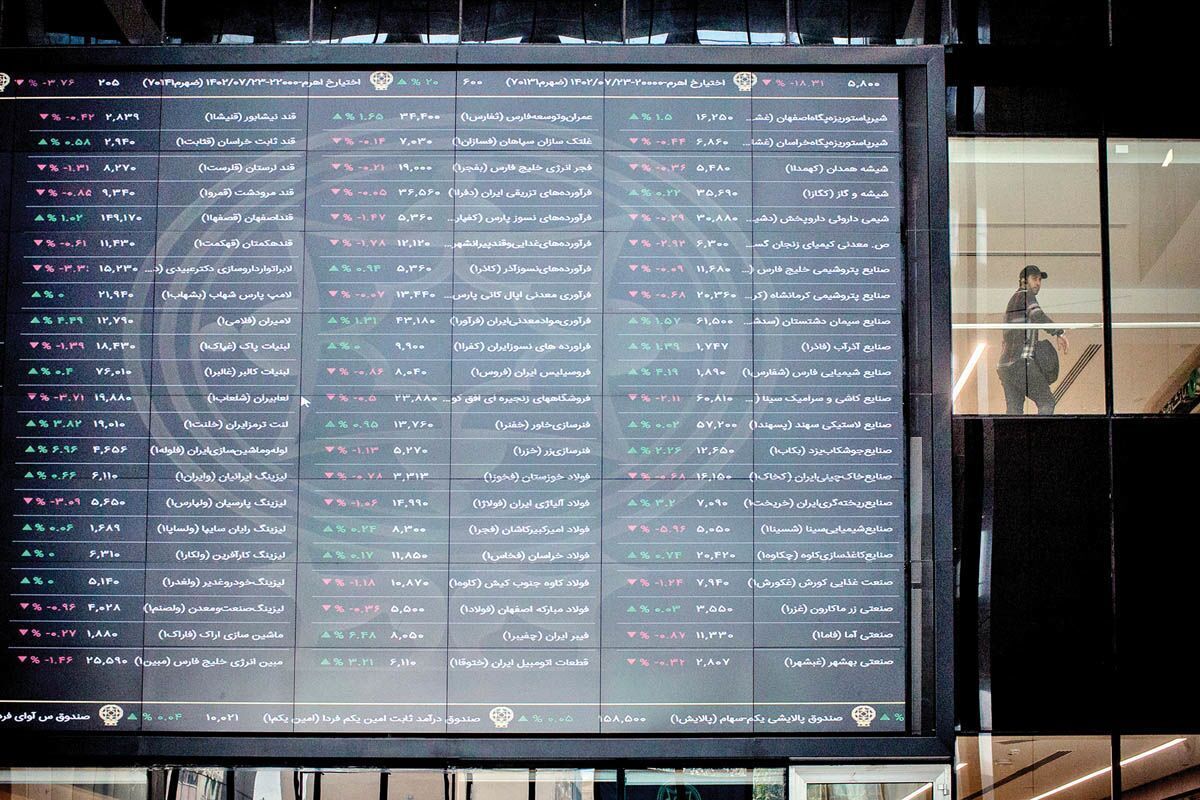 ۵,۸۰۰ ▼ % -۱۸.۳۱ اختیارخ اهرم-۲۰۰۰۰-۱۴۰۲/۰۷/۲۳ (ضهرم۷۰۱۳۱) ۶۰۰ ▲ % ۲۰ اختیارخ اهرم-۲۲۰۰۰-۱۴۰۲/۰۷/۲۳ (ضهرم۷۰۱۴۱) ۲۰۵ ▼ % -۳.۷۶
شیرپاستوریزه‌پگاه‌اصفهان (غش... ۱۶,۲۵۰ ▲ % ۱.۵ عمران‌وتوسعه‌فارس (ثفارس۱) ۳۴,۴۰۰ ▲ % ۱.۶۵ قند نیشابور (قنیشا۱) ۲,۸۳۹ ▼ % -۰.۴۲
شیرپاستوریزه‌پگاه‌خراسان (غشا... ۶,۸۶۰ ▼ % -۰.۴۴ غلتک سازان سپاهان (فسازان۱) ۷,۰۳۰ ▼ % -۰.۱۴ قند ثابت خراسان (قثابت۱) ۲,۹۴۰ ▲ % ۰.۵۸
شیشه همدان (کهمدا۱) ۵,۴۸۰ ▼ % -۰.۳۶ فجر انرژی خلیج فارس (بفجر۱) ۱۹,۰۰۰ ▼ % -۰.۲۱ قند لرستان (قلرست۱) ۸,۲۷۰ ▼ % -۱.۳۱
شیشه و گاز (کگاز۱) ۳۵,۶۹۰ ▲ % ۰.۲۲ فرآورده‌های تزریقی ایران (دفرا۱) ۳۶,۵۶۰ ▼ % -۰.۰۵ قند مرودشت (قمرو۱) ۹,۳۴۰ ▼ % -۰.۸۵
شیمی داروئی داروپخش (دشی... ۳۰,۸۸۰ ▼ % -۰.۲۹ فرآورده‌های نسوز پارس (کفپار... ۵,۳۶۰ ▼ % -۱.۴۷ قنداصفهان (قصفها۱) ۱۴۹,۱۷۰ ▲ % ۱.۰۲
ص. معدنی کیمیای زنجان گس... ۶,۳۰۰ ▼ % -۲.۹۳ فرآورده‌های‌غذایی‌وقندپیرانشهر... ۱۲,۱۲۰ ▼ % -۱.۷۸ قندهکمتان (قهکمت۱) ۱۱,۴۳۰ ▼ % -۰.۶۱
صنایع پتروشیمی خلیج فارس (... ۱۱,۶۸۰ ▼ % -۰.۰۹ فرآورده‌های‌نسوزآذر (کاذر۱) ۵,۳۶۰ ▲ % ۰.۹۴ لابراتوارداروسازی دکترعبیدی (د... ۱۵,۲۳۰
صنایع پتروشیمی کرمانشاه (کر... ۲۰,۳۶۰ ▼ % -۰.۶۸ فرآوری معدنی اپال کانی پارس... ۱۳,۴۴۰ ▼ % -۰.۰۷ لامپ پارس شهاب (بشهاب۱) ۲۱,۹۴۰ ▲ % ۰
صنایع سیمان دشتستان (سدش... ۶۱,۵۰۰ ▲ % ۱.۵۷ فرآوری‌موادمعدنی‌ایران (فرآور۱) ۴۳,۱۸۰ ▲ % ۱.۳۱ لامیران (فلامی۱) ۱۲,۷۹۰ ▲ % ۴.۴۹
صنایع آذرآب (فاذر۱) ۱,۷۴۷ ▲ % ۱.۳۹ فراورده های نسوزایران (کفرا۱) ۹,۹۰۰ ▲ % ۰ لبنیات پاک (غپاک۱) ۱۸,۴۳۰ ▼ % -۱.۳۹
صنایع شیمیایی فارس (شفارس۱) ۱,۸۹۰ ▲ % ۴.۱۹ فروسیلیس ایران (فروس۱) ۸,۰۴۰ ▼ % -۰.۸۶ لبنیات کالبر (غالبر۱) ۷۶,۰۱۰ ▲ % ۰.۴
صنایع کاشی و سرامیک سینا (... ۶۰,۸۱۰ ▼ % -۲.۱۱ فروشگاههای زنجیره ای افق کو... ۲۳,۸۸۰ ▼ % -۰.۵ لعابیران (شلعاب۱) ۱۹,۸۸۰ ▼ % -۳.۷۱
صنایع لاستیکی سهند (پسهند۱) ۵۷,۲۰۰ ▲ % ۰.۰۲ فنرسازی‌خاور (خفنر۱) ۱۳,۷۶۰ ▲ % ۰.۹۵ لنت ترمزایران (خلنت۱) ۱۹,۰۱۰ ▲ % ۳.۸۲
صنایع‌جوشکاب‌یزد (بکاب۱) ۱۲,۶۵۰ ▲ % ۲.۲۶ فنرسازی‌زر (خزر۱) ۵,۲۷۰ ▼ % -۱.۱۳ لوله‌وماشین‌سازی‌ایران (فلوله۱) ۴,۶۵۶ ▲ % ۶.۹۶
صنایع‌خاک‌چینی‌ایران (کخاک۱) ۱۶,۱۵۰ ▼ % -۰.۶۸ فولاد خوزستان (فخوز۱) ۳,۳۱۳ ▼ % -۰.۷۸ لیزینگ ایرانیان (وایران۱) ۶,۱۱۰ ▲ % ۰.۶۶
صنایع‌ریخته‌گری‌ایران (خریخت۱) ۷,۰۹۰ ▲ % ۳.۲ فولاد آلیاژی ایران (فولاژ۱) ۱۴,۹۹۰ ▼ % -۱.۰۶ لیزینگ پارسیان (ولپارس۱) ۵,۶۵۰ ▼ % -۳.۰۹
صنایع‌شیمیایی‌سینا (شسینا۱) ۵,۰۵۰ ▼ % -۵.۹۶ فولاد امیرکبیرکاشان (فجر۱) ۸,۳۰۰ ▲ % ۰.۲۴ لیزینگ رایان سایپا (ولساپا۱) ۱,۶۸۹ ▲ % ۰.۰۶
صنایع‌کاغذسازی‌کاوه (چکاوه۱) ۲۰,۴۲۰ ▲ % ۰.۷۴ فولاد خراسان (فخاس۱) ۱۱,۸۵۰ ▲ % ۰.۱۷ لیزینگ کارآفرین (ولکار۱) ۶,۳۱۰ ▲ % ۰
صنعت غذایی کورش (غکورش۱) ۷,۹۴۰ ▼ % -۱.۲۴ فولاد کاوه جنوب کیش (کاوه۱) ۱۰,۸۷۰ ▼ % -۱.۱۸ لیزینگ‌خودروغدیر (ولغدر۱) ۵,۱۴۰ ▲ % ۰
صنعتی زر ماکارون (غزر۱) ۳,۵۵۰ ▲ % ۰.۰۳ فولاد مبارکه اصفهان (فولاد۱) ۵,۵۰۰ ▼ % -۰.۳۶ لیزینگ‌صنعت‌ومعدن (ولصنم۱) ۴,۰۲۸ ▼ % -۰.۹۶
صنعتی آما (فاما۱) ۱۱,۳۳۰ ▼ % -۰.۸۷ فیبر ایران (چفیبر۱) ۸,۰۵۰ ▲ % ۶.۴۸ ماشین سازی اراک (فاراک۱) ۱,۸۸۰ ▼ % -۰.۲۷
صنعتی بهشهر (غبشهر۱) ۲,۸۰۷ ▼ % -۰.۳۲ قطعات اتومبیل ایران (ختوقا۱) ۶,۱۱۰ ▲ % ۳.۲۱ مبین انرژی خلیج فارس (مبین۱) ۲۵,۵۹۰ ▼ % -۱.۴۶
▲ % صندوق پالایشی یکم-سهام (پالایش۱) ۱۵۸,۵۰۰ ▲ % ۰.۰۵ صندوق درآمد ثابت امین یکم فردا (امین یکم۱) ۱۰,۰۲۱ ▲ % ۰.۰۴ صندوق س آوای فرد